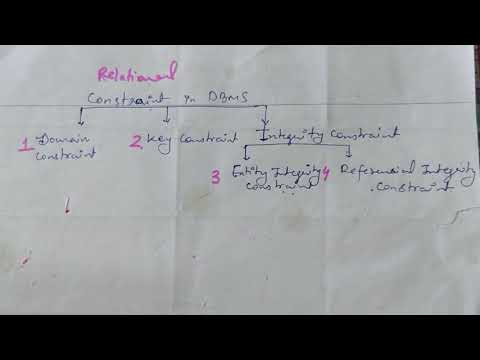 Relational
Constraint in DBMS
1 Domain constraint
2 Key Constraint
Integrity Constraint
3 Entity Integrity constraint
4 Referential Integrity constraint